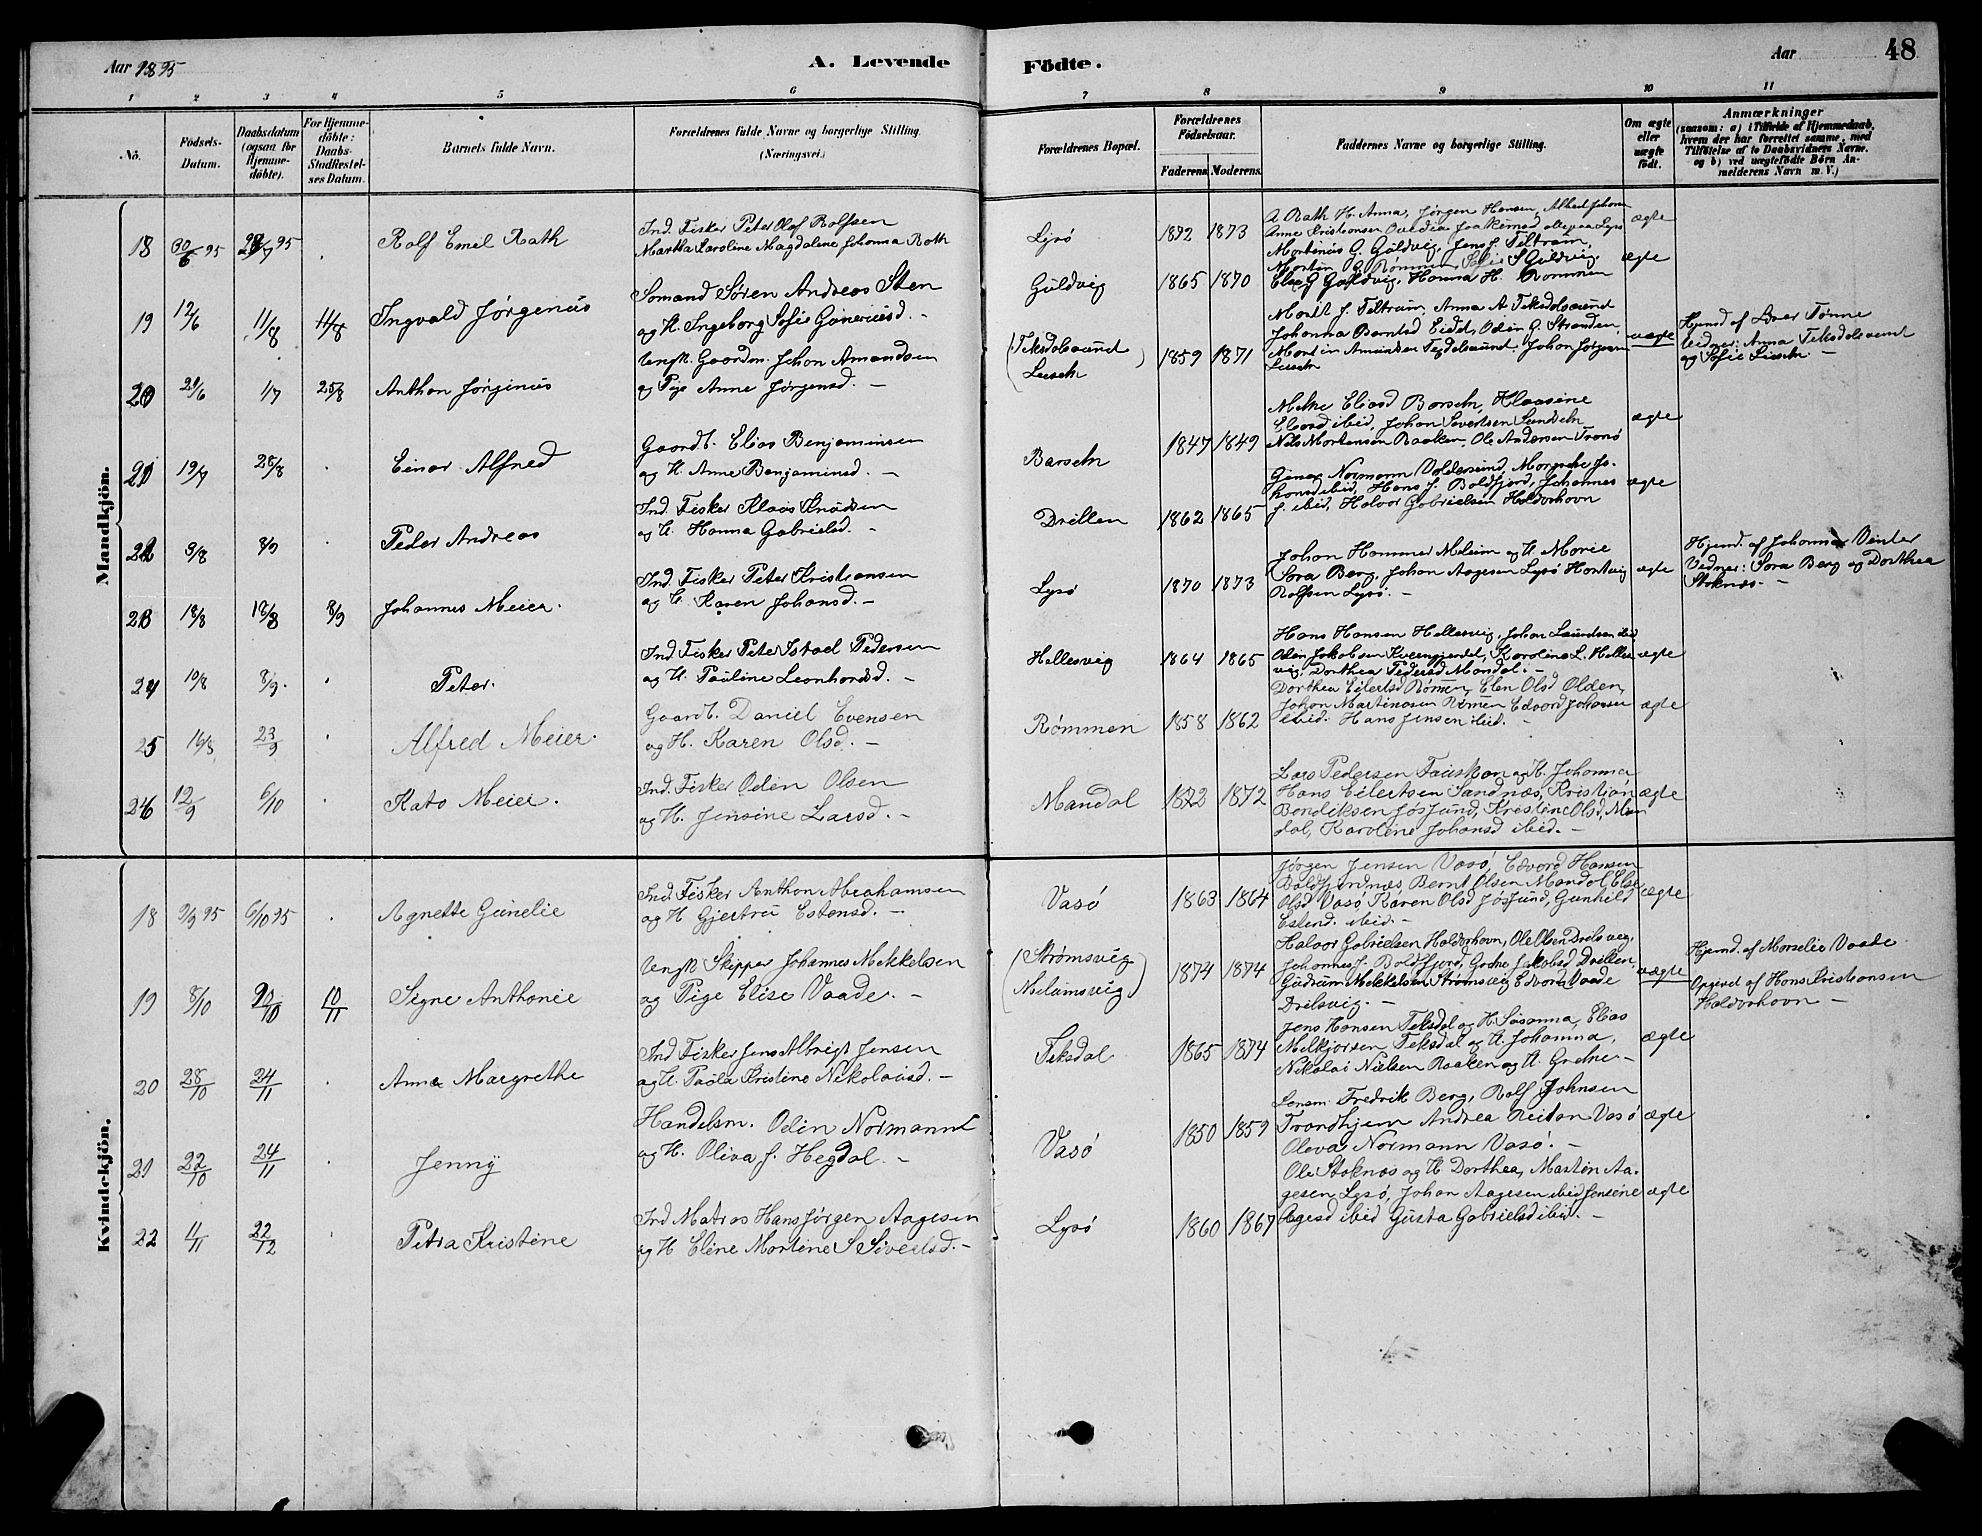 Aar 1895
A. Levende
Födte.
Aar
48
1 2 3 4 5 6 7 8 9 10 11
No.
Födsels-
Datum.
Daabsdatum
(ogsaa for
Hjemme-
döbte).
For Hjemme-
döbte:
Daabs-
Stadfæstel-
ses Datum.
Barnets fulde Navn.
Forældrenes fulde Navne og borgerlige Stilling.
(Næringsvei.)
Forældrenes Bopæl.
Forældrenes
Födselsaar.
Faderens Moderens
Faddernes Navne og borgerlige Stilling.
Om ægte
eller
uægte
födt.
Anmærkninger
(saasom: a) i Tilfælde af Hjemmedaab,
hvem der har forrettet samme, med
Tilföielse af to Daabsvidners Navne.
og b) ved uægtefödte Börn An-
melderens Navn m. V.)
Mandkjön.
18 30/6 95 29/7 95 Rolf Emil Rath
Ind. Fisker Peter Olaf Rolfsen
Martha Karoline Magdalene Johanna Roth
Lysö 1872 1873
A Rath H. Anna, Jørgen Hansen, Albert Johan
Anne Kristiansen Ovedia Joakimsd alle paa Lysö
ægte
19 12/6 11/8 11/8 Ingvald Jørgenius
Somand Søren Andreas Sten
og H. Ingeborg Sofie Gunerusd. -
Guldvig 1865 1870
Mortinus G. Guldvig, Jens J. Teltrum,
Morten G. Rømmen Sofie S Guldvig
Else G Guldvig, Hanna H. Rommen
ægte
20 29/6 1/7 25/8 Anthon Jørginus
Ungk. Gaardm. Johan Amandsen
og Pige Anne Jørgensd. -
(Teksdalsaund
Leseth) 1859 1871
Morit J. Teltrum, Anna A Teksdalsaund
Johanna Berntsd Eidet, Odin G. Stranden
Morten Amundsen Tegdalsaund, Johan Jørgensen
Leseth
uægte
Hjemd af Iver Tønne
Vidner: Anna Teksdalsaunt
og Sofie Leseth -
21 19/7 28/8 Einar Alfred
Gaardb. Elias Benjaminsen
og H. Anne Benjaminsd. -
Barseth 1847 1849
Mette Eliasd Barseth, Klaasine
Eliasd ibid, Johan Sivertsen Sundseth
Nils Mortensen Baaken, Ole Andersen Tronö
ægte
22 9/8 8/9 Peder Andreas
Ind. Fisker Klaos Knudsen
og H. Hanna Gabrielsd. -
Drillen 1862 1865
Normann Valdersund, Margrethe Jo-
hansd ibid, Hans J. Boldfjord, Johannes
J. ibid, Halvor Gabrielsen Haldorhovn
ægte
23 18/8 18/8 8/9 Johannes Meier.
Ind. Fisker Peter Kristiansen
og H. Karen Johansd. -
Lysö 1870 1873
Johan Hammer Meleim og H. Marie
Sora Berg, Johan Aagesen Lysö Hartvig
Rolfsen Lysö. -
ægte
Hjemd. af Johanna Vinter
Vidner: Sora Berg og Dorthea
Stoknæs. -
24 10/8 8/9. Peter.
Ind. Fisker Peter Istael Pedersen
og H. Pauline Leonhardsd. -
Hellesvig 1864 1865
Hans Hansen Hellesvig, Johan Lauritsen ibid
Oden Jakobsen Kverngjerdet, Karoline L. Helles-
vig, Dorthea Pedersd Mandal. -
ægte
25 16/8 23/9 Alfred Meier.
Gaardb. Daniel Evensen
og H. Karen Olsd. -
Rømmen 1858 1862
Dorthea Eilertsd Rømen, Elen Olsd Olden,
Johan Martinasen Rømen Edvard Johansen
ibid. Hans Jensen ibid. -
ægte
26 12/9 6/10 Kato Meier.
Ind. Fisker Odin Olsen
og H. Jensine Larsd. -
Mandal 1872 1872
Lars Pedersen Fauskan og H. Johanna
Hans Eilertsen Sandnæs, Kristian
Bendiksen Jøssund, Kristine Olsd, Man
dal, Karoline Johansd ibid. -
ægte
Kvindekjön.
18 9/9 95 6/10 95 Agnette Gunelie
Ind. Fisker Anthon Abrahamsen
og H Gjertru Estensd. -
Vasö 1863 1864
Jørgen Jensen Vasö, Edvard Hansen
Boldfjordnæs, Bernt Olsen Mandal, Else
Olsd Vasö, Karen Olsd Jøssund, Gunhild
Estensd. ibid. -
ægte
19 8/10 20/10 10/11 Signe Anthonie
Ungk Skipper Johannes Mekkelsen
og Pige Elise Vaade. -
(Strømsvig
Meleimsvig) 1874 1874
Halvor Gabrielsen Haldorhovn, Ole Olsen Drilsvig,
Johannes J. Boldfjord, Grethe Jakobsd Drillen
Gudrun Mekkelsen Strømsvig Edvard Vaade
Drilsvig. -
uægte
Hjemd. af Marselie Vaade
Opgivet af Hans Kristiansen
Haldorhovn -
20 28/10 24/11 Anna Margrethe
Ind Fisker Jens Albrigt Jensen
og H Paula Kristine Nikolaisd. -
Teksdal 1865 1874
Jens Hansen Teksdal og H. Susanna, Elias
Melkjorsen Teksdal og H. Johanna,
Nikolai Nielsen Raaken og H. Grethe. -
ægte
21 22/10 24/11 Jenny
Handelsm. Odin Normann
og H. Oliva J. Hegdal. -
Vasö 1850 1859
Lensm. Fredrik Berg, Rolf Johnsen
Trondhjem Andrea Reitan Vasö
Oleva Normann Vasö. -
ægte
22 11/11 22/12 Petra Kristine
Ind Matros Hans Jørgen Aagesen
og H Eline Martine S Siverlsd. -
Lysö 1860 1867
Ole Stoknæs og H Dorthea, Marten Aa-
gesen Lysö, Johan Aagesen ibid Jensine
Agesd ibid Gusta Gabrielsd ibid. -
ægte